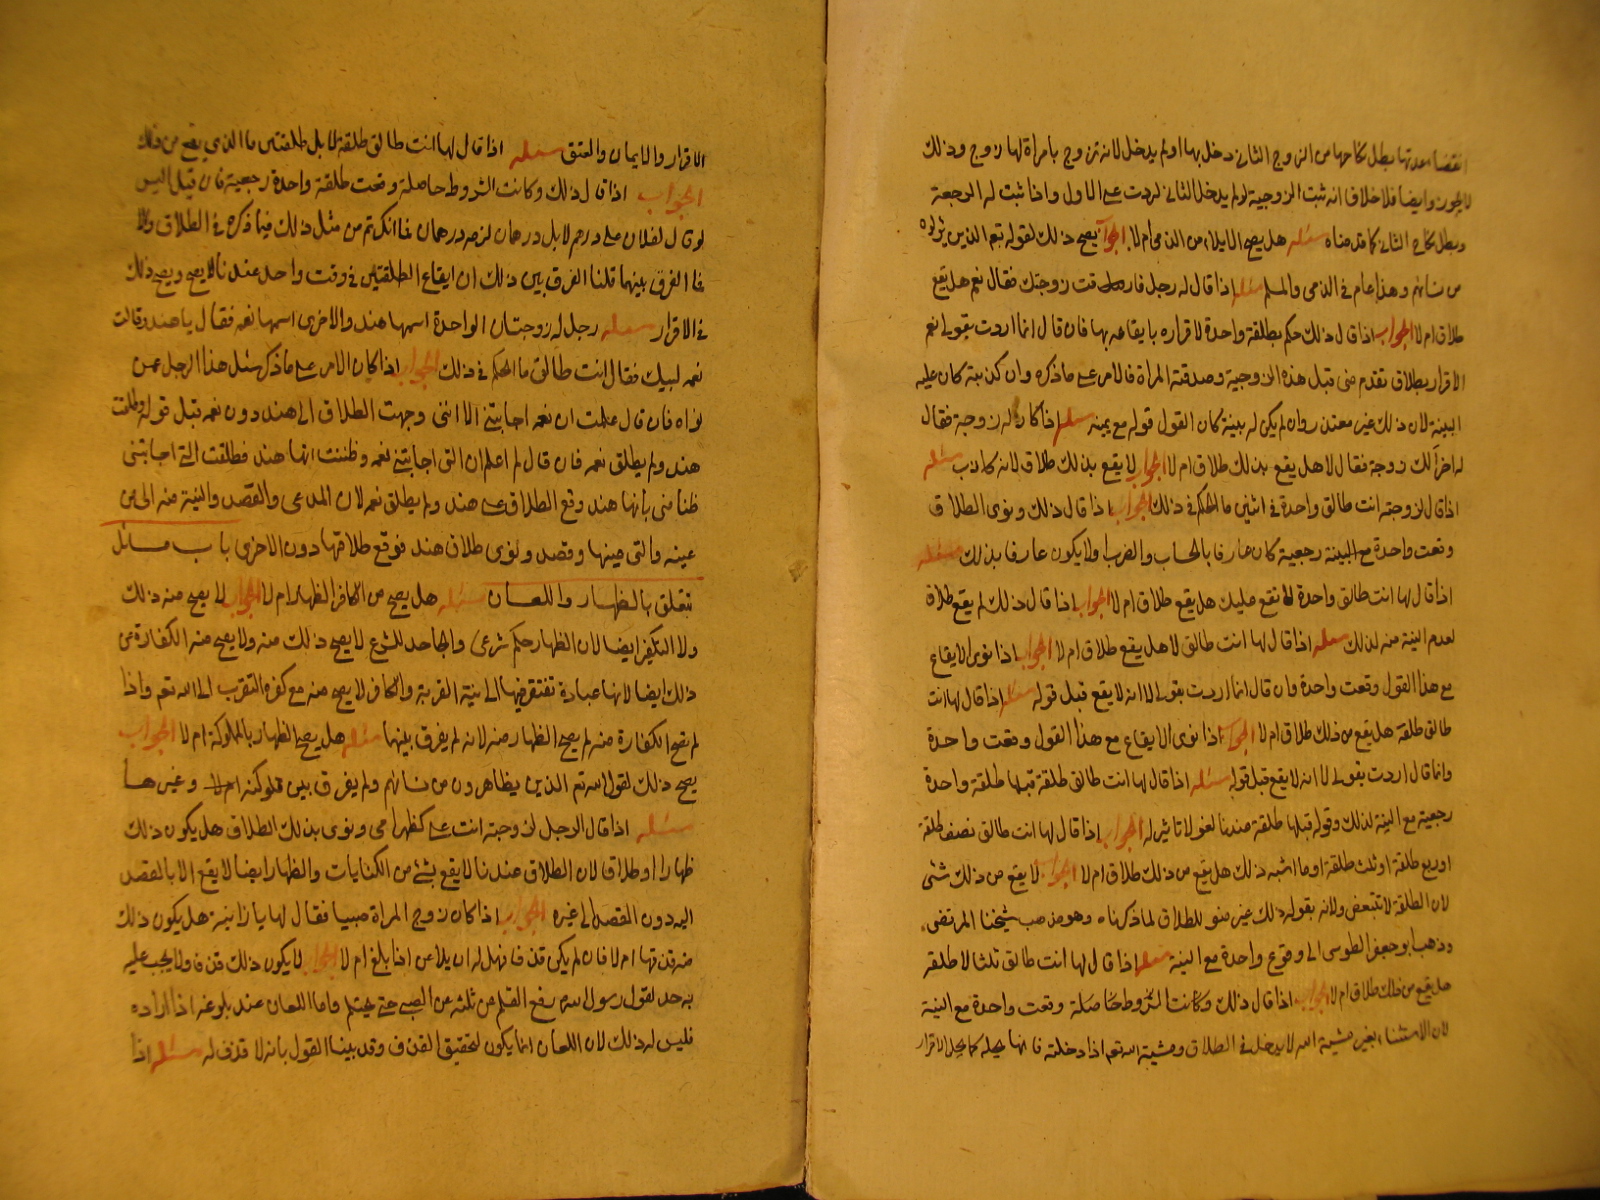 انقضاء عدتها بطل نكاحها من الزوج الثاني دخل بها او لم يدخل لانه تزوج بامراة لها زوج وذلك
لا يجوز وايضا فلا خلاف انه ثبت الزوجية لو لم يدخل الثاني لردت على الاول واذا ثبت له الرجعة
وبطل نكاح الثاني كما قدمناه مسئله هل يصح الايلاء من الذمي ام لا الجواب يصح ذلك لقوله تعم الذين يؤلون
من نسائهم وهذا عام في الذمي والمسلم مسئله اذا قال له رجل فارقت زوجتك فقال نعم هل يقع
طلاق ام لا الجواب اذا قال ذلك حكم بطلقة واحدة لاقراره بايقاعه بها فان قال انما اردت بقولي نعم
الاقرار بطلاق تقدم مني قبل هذه الزوجية وصدقته المراة فالامر على ما ذكره وان كذبته كان عليه
البينة لان ذلك غير متعذر وان لم يكن له بينة كان القول قوله مع يمينه مسئله اذا كان له زوجة فقال
له اخر ألك زوجة فقال لا هل يقع بذلك طلاق ام لا الجواب لا يقع بذلك طلاق لانه كاذب مسئله
اذا قال لزوجته انت طالق واحدة في اثنين ما الحكم في ذلك الجواب اذا قال ذلك ونوى الطلاق
وقعت واحدة مع البينة رجعية كان عارفا بالحساب والضرب او لا يكون عارفا بذلك مسئله
اذا قال لها انت طالق واحدة لا تقع عليك هل يقع طلاق ام لا الجواب اذا قال ذلك لم يقع طلاق
لعدم النية منه لذلك مسئله اذا قال لها انت طالق لا هل يقع طلاق ام لا الجواب اذا نوى الايقاع
مع هذا القول وقعت واحدة وان قال انما اردت بقولي لا انه لا يقع قبل قوله مسئله اذا قال لها انت
طالق طلقة هل يقع من ذلك طلاق ام لا الجواب اذا نوى الايقاع مع هذا القول وقعت واحدة
وانما قال اردت بقولي لا انه لا يقع قبل قوله مسئله اذا قال لها انت طالق طلقة قبلها طلقة واحدة
رجعية مع النية لذلك وقوله قبلها طلقة عندنا لغو لا تاثير له الجواب اذا قال لها انت طالق نصف طلقة
او ربع طلقة او ثلث طلقة او ما اشبه ذلك هل يقع من ذلك طلاق ام لا الجواب لا يقع من ذلك شئ
لان الطلقة لا تتبعض ولانه بقوله ذلك غير منو للطلاق لما ذكرناه وهو مذهب شيخنا المرتضى
وذهب ابو جعفر الطوسى الى وقوع واحدة مع النية مسئله اذا قال لها انت طالق ثلثا لا طلقه
هل يقع من ذلك طلاق ام لا الجواب اذا قال ذلك وكانت الشروط حاصلة وقعت واحدة مع النية
لان الاستثناء بغير مشية الله لا يدخل في الطلاق ومشية الله تعم اذا دخلته فانها يحله كما يحل الاقرار
الاقرار والايمان والعتق مسئله اذا قال لها انت طالق طلقة لا بل طلقتين ما الذي يقع من ذلك
الجواب اذا قال ذلك وكانت الشروط حاصلة وقعت طلقة واحدة رجعية فان قيل اليس
لو قال لفلان على درهم لا بل درهمان لزمه درهمان فما انكرتم من مثل ذلك فيما ذكره في الطلاق والا
فما الفرق بينهما قلنا الفرق بين ذلك ان ايقاع الطلقتين في وقت واحد عندنا لا يصح ويصح ذلك
في الاقرار مسئله رجل له زوجتان الواحدة اسمها هند والاخرى اسمها نعمه فقال يا هند وقالت
نعمه لبيك فقال انت طالق ما الحكم في ذلك الجواب اذا كان الامر على ما ذكر سئل هذا الرجل عمن
نواه فان قال علمت ان نعمه اجابتني الا انني وجهت الطلاق الى هند دون نعمه قبل قوله وطلقت
هند ولم يطلق نعمه فان قال لم اعلم ان التي اجابتني نعمه وظننت انها هند فطلقت التي اجابتني
ظنا مني بانها هند وقع الطلاق على هند ولم يطلق نعمه لان المدعى والقصد والنية منه الى من
عينه والتي عينها وقصد ونوى طلاق هند فوقع طلاقها دون الاخرى باب مسائل
تتعلق بالظهار واللعان مسئله هل يصح من الكافر الظهار ام لا الجواب لا يصح منه ذلك
ولا التكفير ايضا لان الظهار حكم شرعى والجاحد للشرع لا يصح ذلك منه ولا يصح منه الكفارة عن
ذلك ايضا لانها عبادة تفتقر فيها الى نية القربة والكافر لا يصح منه مع كفره التقرب الى الله تعم واذا
لم يصح الكفارة منه لم يصح الظهار منه لانه لم يفرق بينها مسئله هل يصح الظهار بالمملوكة ام لا الجواب
يصح ذلك لقول الله تعم الذين يظاهرون من نسائهم ولم يفرق بين مملوكته ام لا وغيرها
مسئله اذا قال الرجل لزوجته انت على كظهر امى ونوى بذلك الطلاق هل يكون ذلك
ظهارا او طلاقا لان الطلاق عندنا لا يقع بشئ من الكنايات والظهار ايضا لا يقع الا بالقصد
اليه دون القصد الى غيره الجواب اذا كان زوج المراة صبيا فقال لها يا زانية هل يكون ذلك
منه قذفها ام لا فان لم يكن قذفا فهل له ان يلاعن اذا بلغ ام لا الجواب لا يكون ذلك قذفا ولا يجب عليه
به حد لقول رسول الله رفع القلم من ثلثه عن الصبي حتى يحتلم واما اللعان عند بلوغه اذا اراده
فليس له ذلك لان اللعان انما يكون لتحقيق القذف وقد بينا القول بانه لا قذف له مسئله اذا